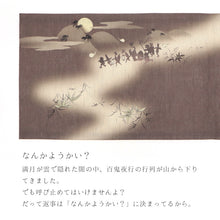 なんかようかい？
満月が雲で隠れた闇の中、百鬼夜行の行列が山から下り
てきました。
でも呼び止めてはいけませんよ？
だって返事は「なんかようかい？」に決まってるから。